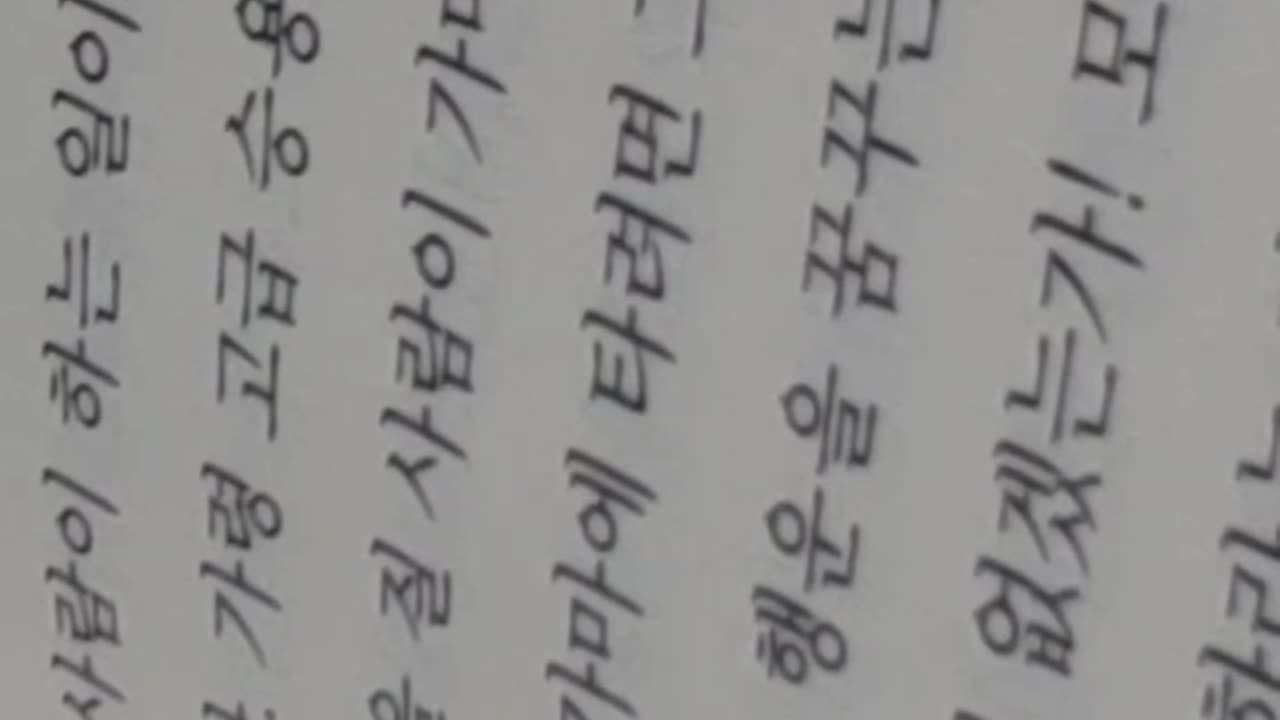 사람이 하는 일이
가령 고급 승용
질 사람이 가
가마에 타려면
행운을 꿈꾸는
없겠는가! 모